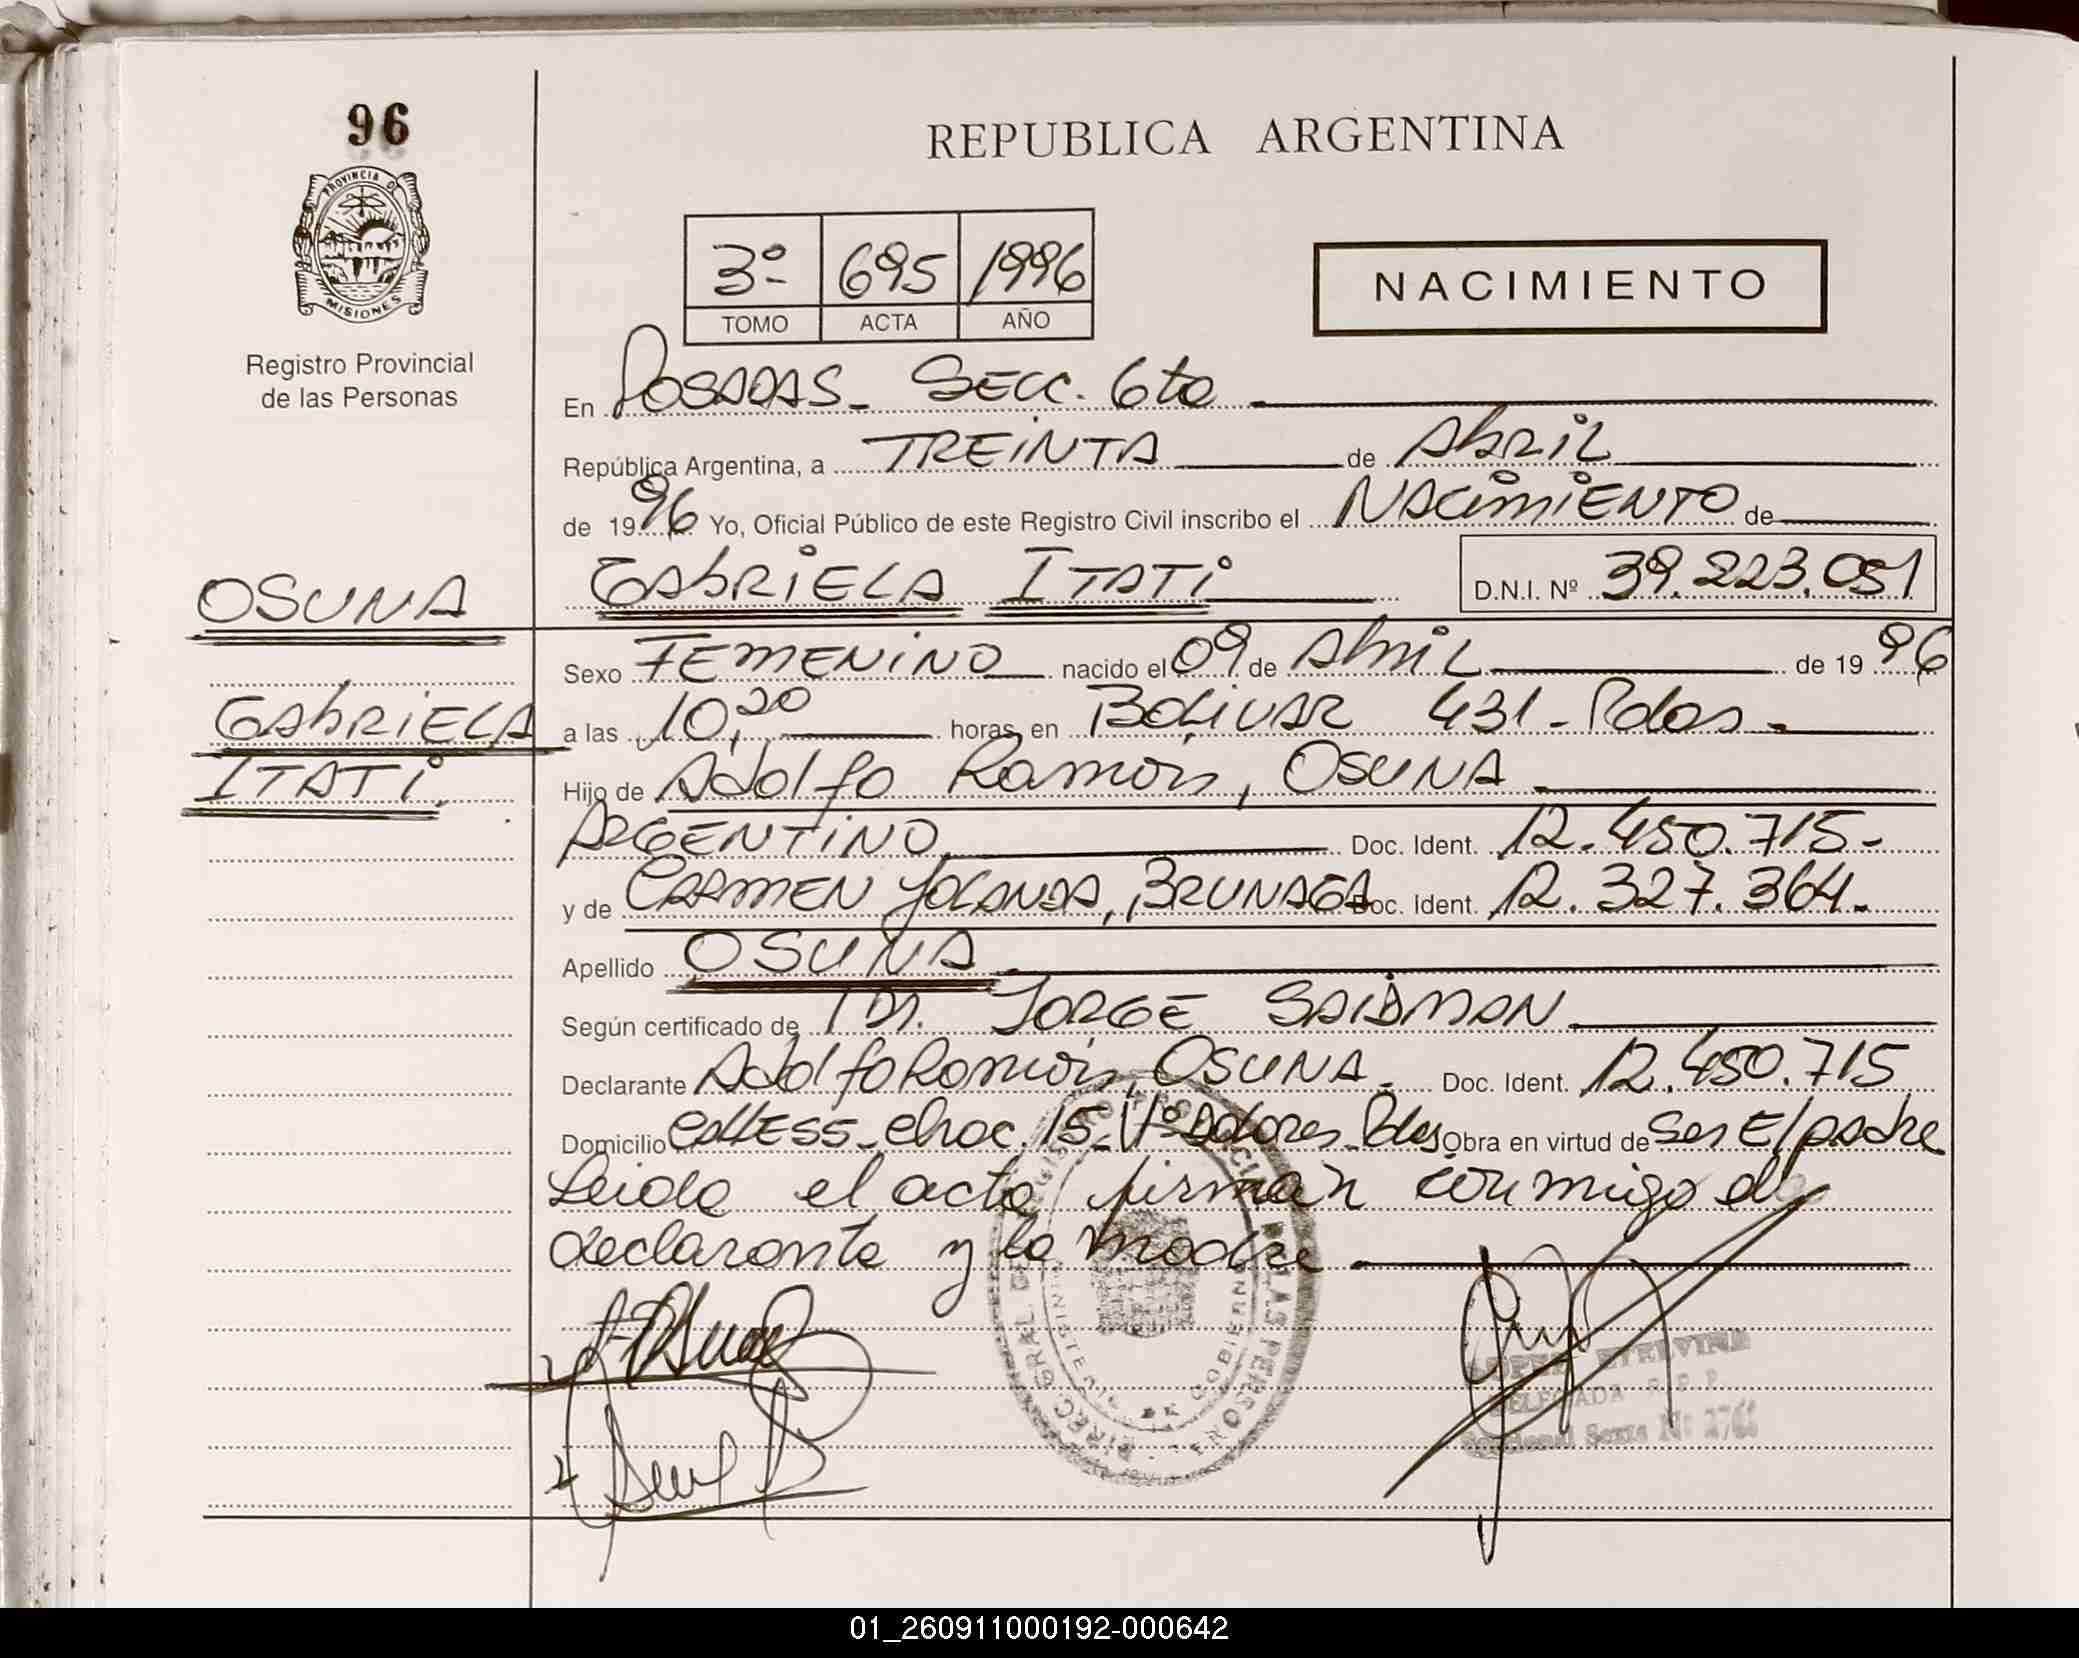 96
REPUBLICA ARGENTINA
PROVINCIA DE
MISIONES
Registro Provincial
de las Personas
3º 695 1996
TOMO ACTA AÑO
NACIMIENTO
En POSADAS - SECC. 6ta
República Argentina, a TREINTA de Abril
de 1996 Yo, Oficial Público de este Registro Civil inscribo el NACIMIENTO de
GABRIELA ITATI D.N.I. Nº 39.223.051
OSUNA
GABRIELA
ITATI.
Sexo FEMENINO nacido el 09 de Abril de 19 96
a las 10,20 horas, en BOLIVAR 431 - Pdas -
Hijo de Adolfo Ramón, OSUNA
ARGENTINO Doc. Ident. 12.450.715.-
y de CARMEN YOLANDA, BRUNAGA Doc. Ident. 12.327.364.
Apellido OSUNA
Según certificado de Dr. JORGE SAIDMAN
Declarante Adolfo Ramón, OSUNA. Doc. Ident. 12.450.715
Domicilio Dolores - Pdas Obra en virtud de Ser El padre
Leida el acta firman conmigo el
declarante y la madre
DELEGADA R.P.P.
Seccional Sexta
01_260911000192-000642